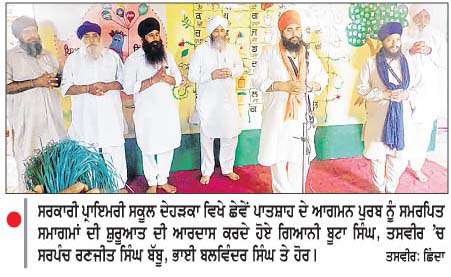 ਸਰਕਾਰੀ ਪ੍ਰਾਇਮਰੀ ਸਕੂਲ ਦੇਹੜਕਾ ਵਿਖੇ ਛੇਵੇਂ ਪਾਤਸ਼ਾਹ ਦੇ ਆਗਮਨ ਪੁਰਬ ਨੂੰ ਸਮਰਪਿਤ
ਸਮਾਗਮਾਂ ਦੀ ਸ਼ੁਰੂਆਤ ਦੀ ਆਰਦਾਸ ਕਰਦੇ ਹੋਏ ਗਿਆਨੀ ਬੂਟਾ ਸਿੰਘ, ਤਸਵੀਰ ’ਚ
ਸਰਪੰਚ ਰਣਜੀਤ ਸਿੰਘ ਬੱਬੂ, ਭਾਈ ਬਲਵਿੰਦਰ ਸਿੰਘ ਤੇ ਹੋਰ। ਤਸਵੀਰ: ਛਿੰਦਾ